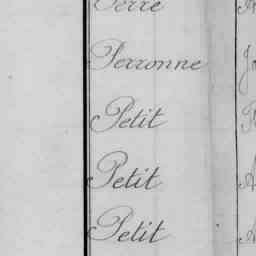 Perronne
Petit
Petit
Petit